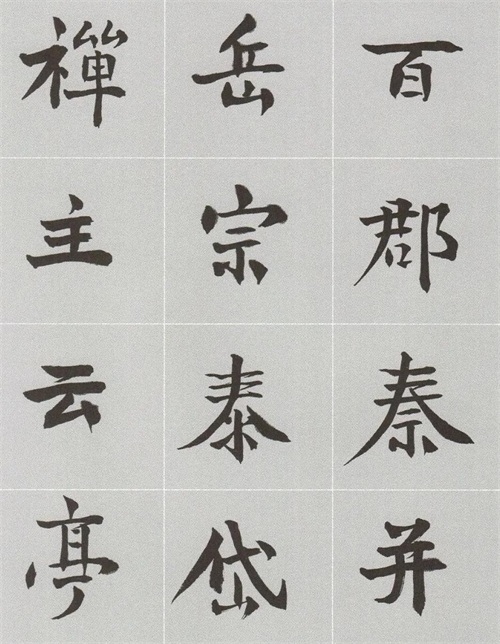 百郡秦并
岳宗泰岱
禪主云亭